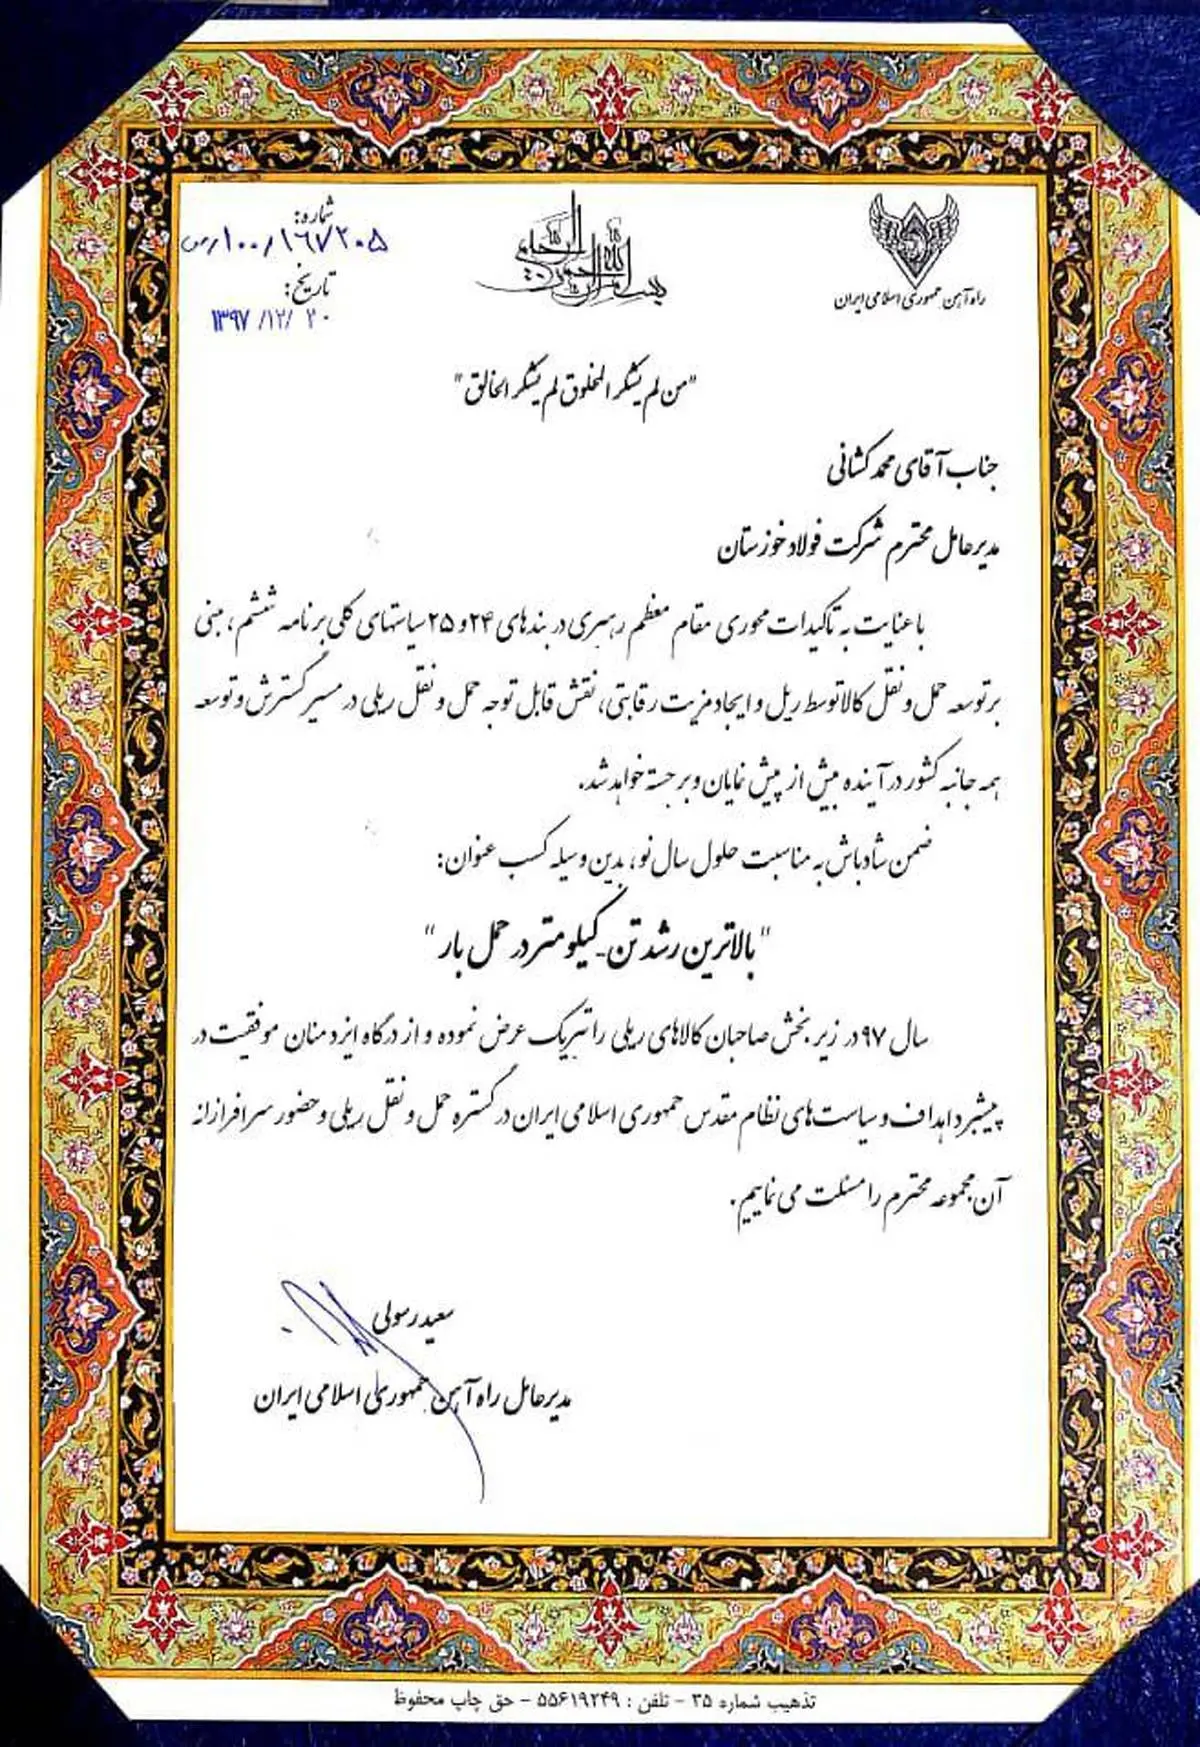 بسم الله الرحمن الرحیم
راه آهن جمهوری اسلامی ایران
شماره:
۱۰۰/۱۶۷۲۰۵/ص
تاریخ:
۱۳۹۷/۱۲/۲۰
"من لم یشکر المخلوق لم یشکر الخالق"
جناب آقای محمد کشانی
مدیرعامل محترم شرکت فولاد خوزستان
با عنایت به تاکیدات محوری مقام معظم رهبری در بندهای ۲۴ و ۲۵ سیاستهای کلی برنامه ششم، مبنی
بر توسعه حمل و نقل کالا توسط ریل و ایجاد مزیت رقابتی، نقش قابل توجه حمل و نقل ریلی در مسیر گسترش و توسعه
همه جانبه کشور در آینده بیش از پیش نمایان و برجسته خواهد شد.
ضمن شادباش به مناسبت حلول سال نو، بدین وسیله کسب عنوان:
"بالاترین رشد تن-کیلومتر در حمل بار"
سال ۹۷ در زیر بخش صاحبان کالاهای ریلی را تبریک عرض نموده و از درگاه ایزد منان موفقیت در
پیشبرد اهداف و سیاست های نظام مقدس جمهوری اسلامی ایران در گستره حمل و نقل ریلی و حضور سرافرازانه
آن مجموعه محترم را مسئلت می نماییم.
سعید رسولی
مدیرعامل راه آهن جمهوری اسلامی ایران
تذهیب شماره ۳۵ - تلفن : ۵۵۶۱۹۲۴۹ - حق چاپ محفوظ